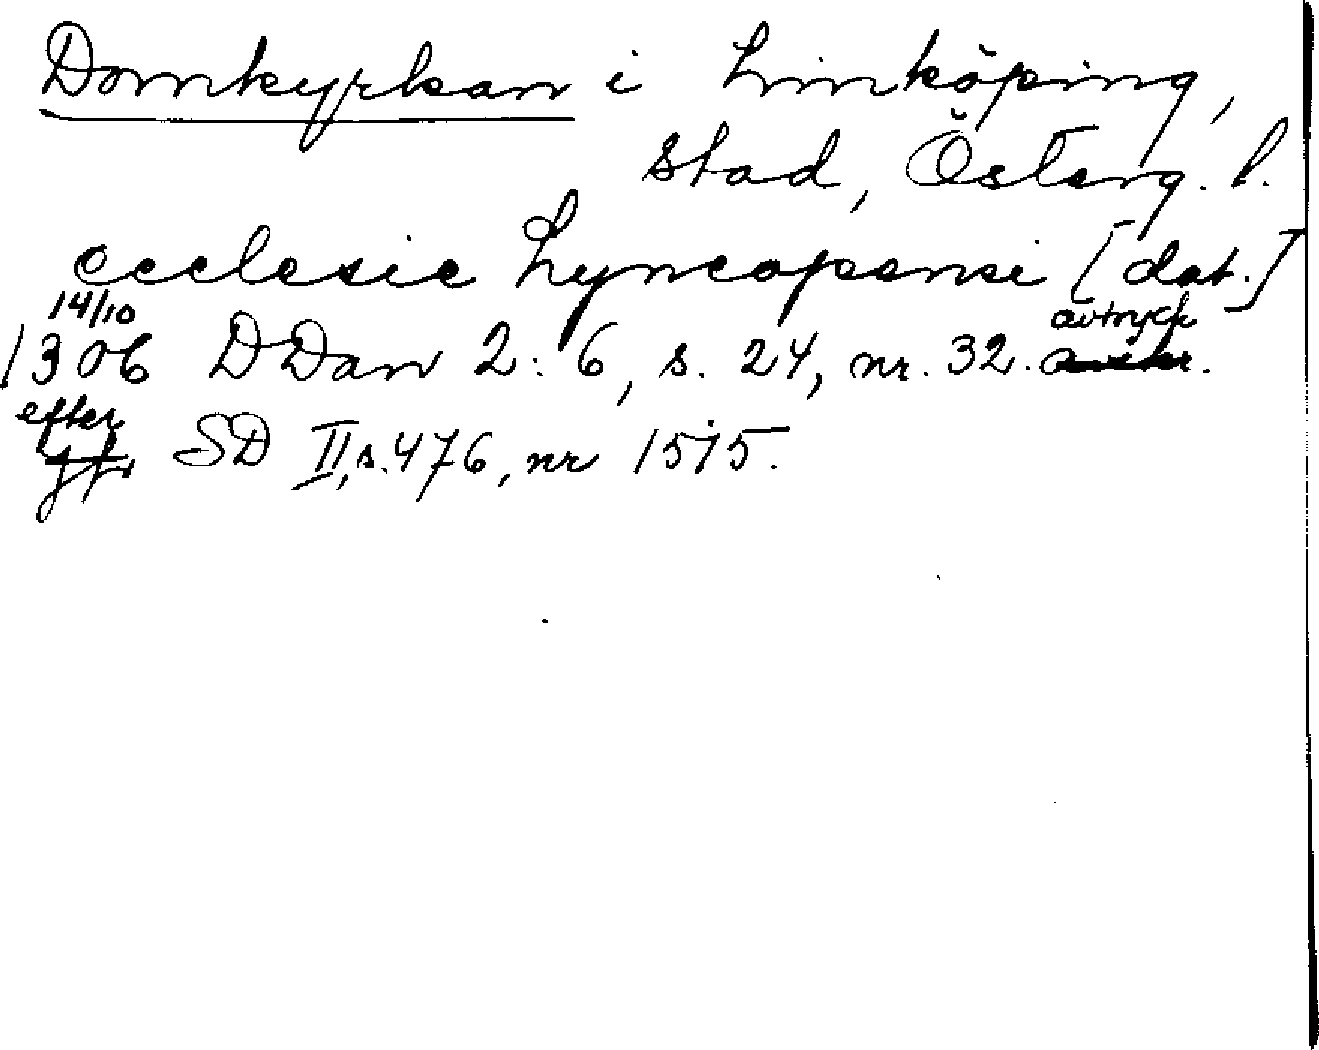 Domkyrkan i Linköping,
stad, Österg. l.
ecclesie Lyncopensi [dat.]
14/10
avtryck
1306 DDan 2:6, s. 24, nr. 32.
efter
jfr SD II, s. 476, nr 1515.